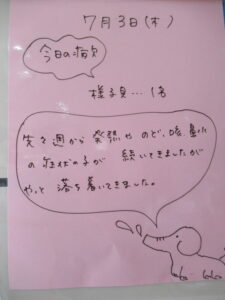 7月3日(木)
今日の病欠
様子見…1名
先々週から発熱や のど、咳、鼻水
の症状の子が 続いてきましたが
やっと落ち着いてきました。